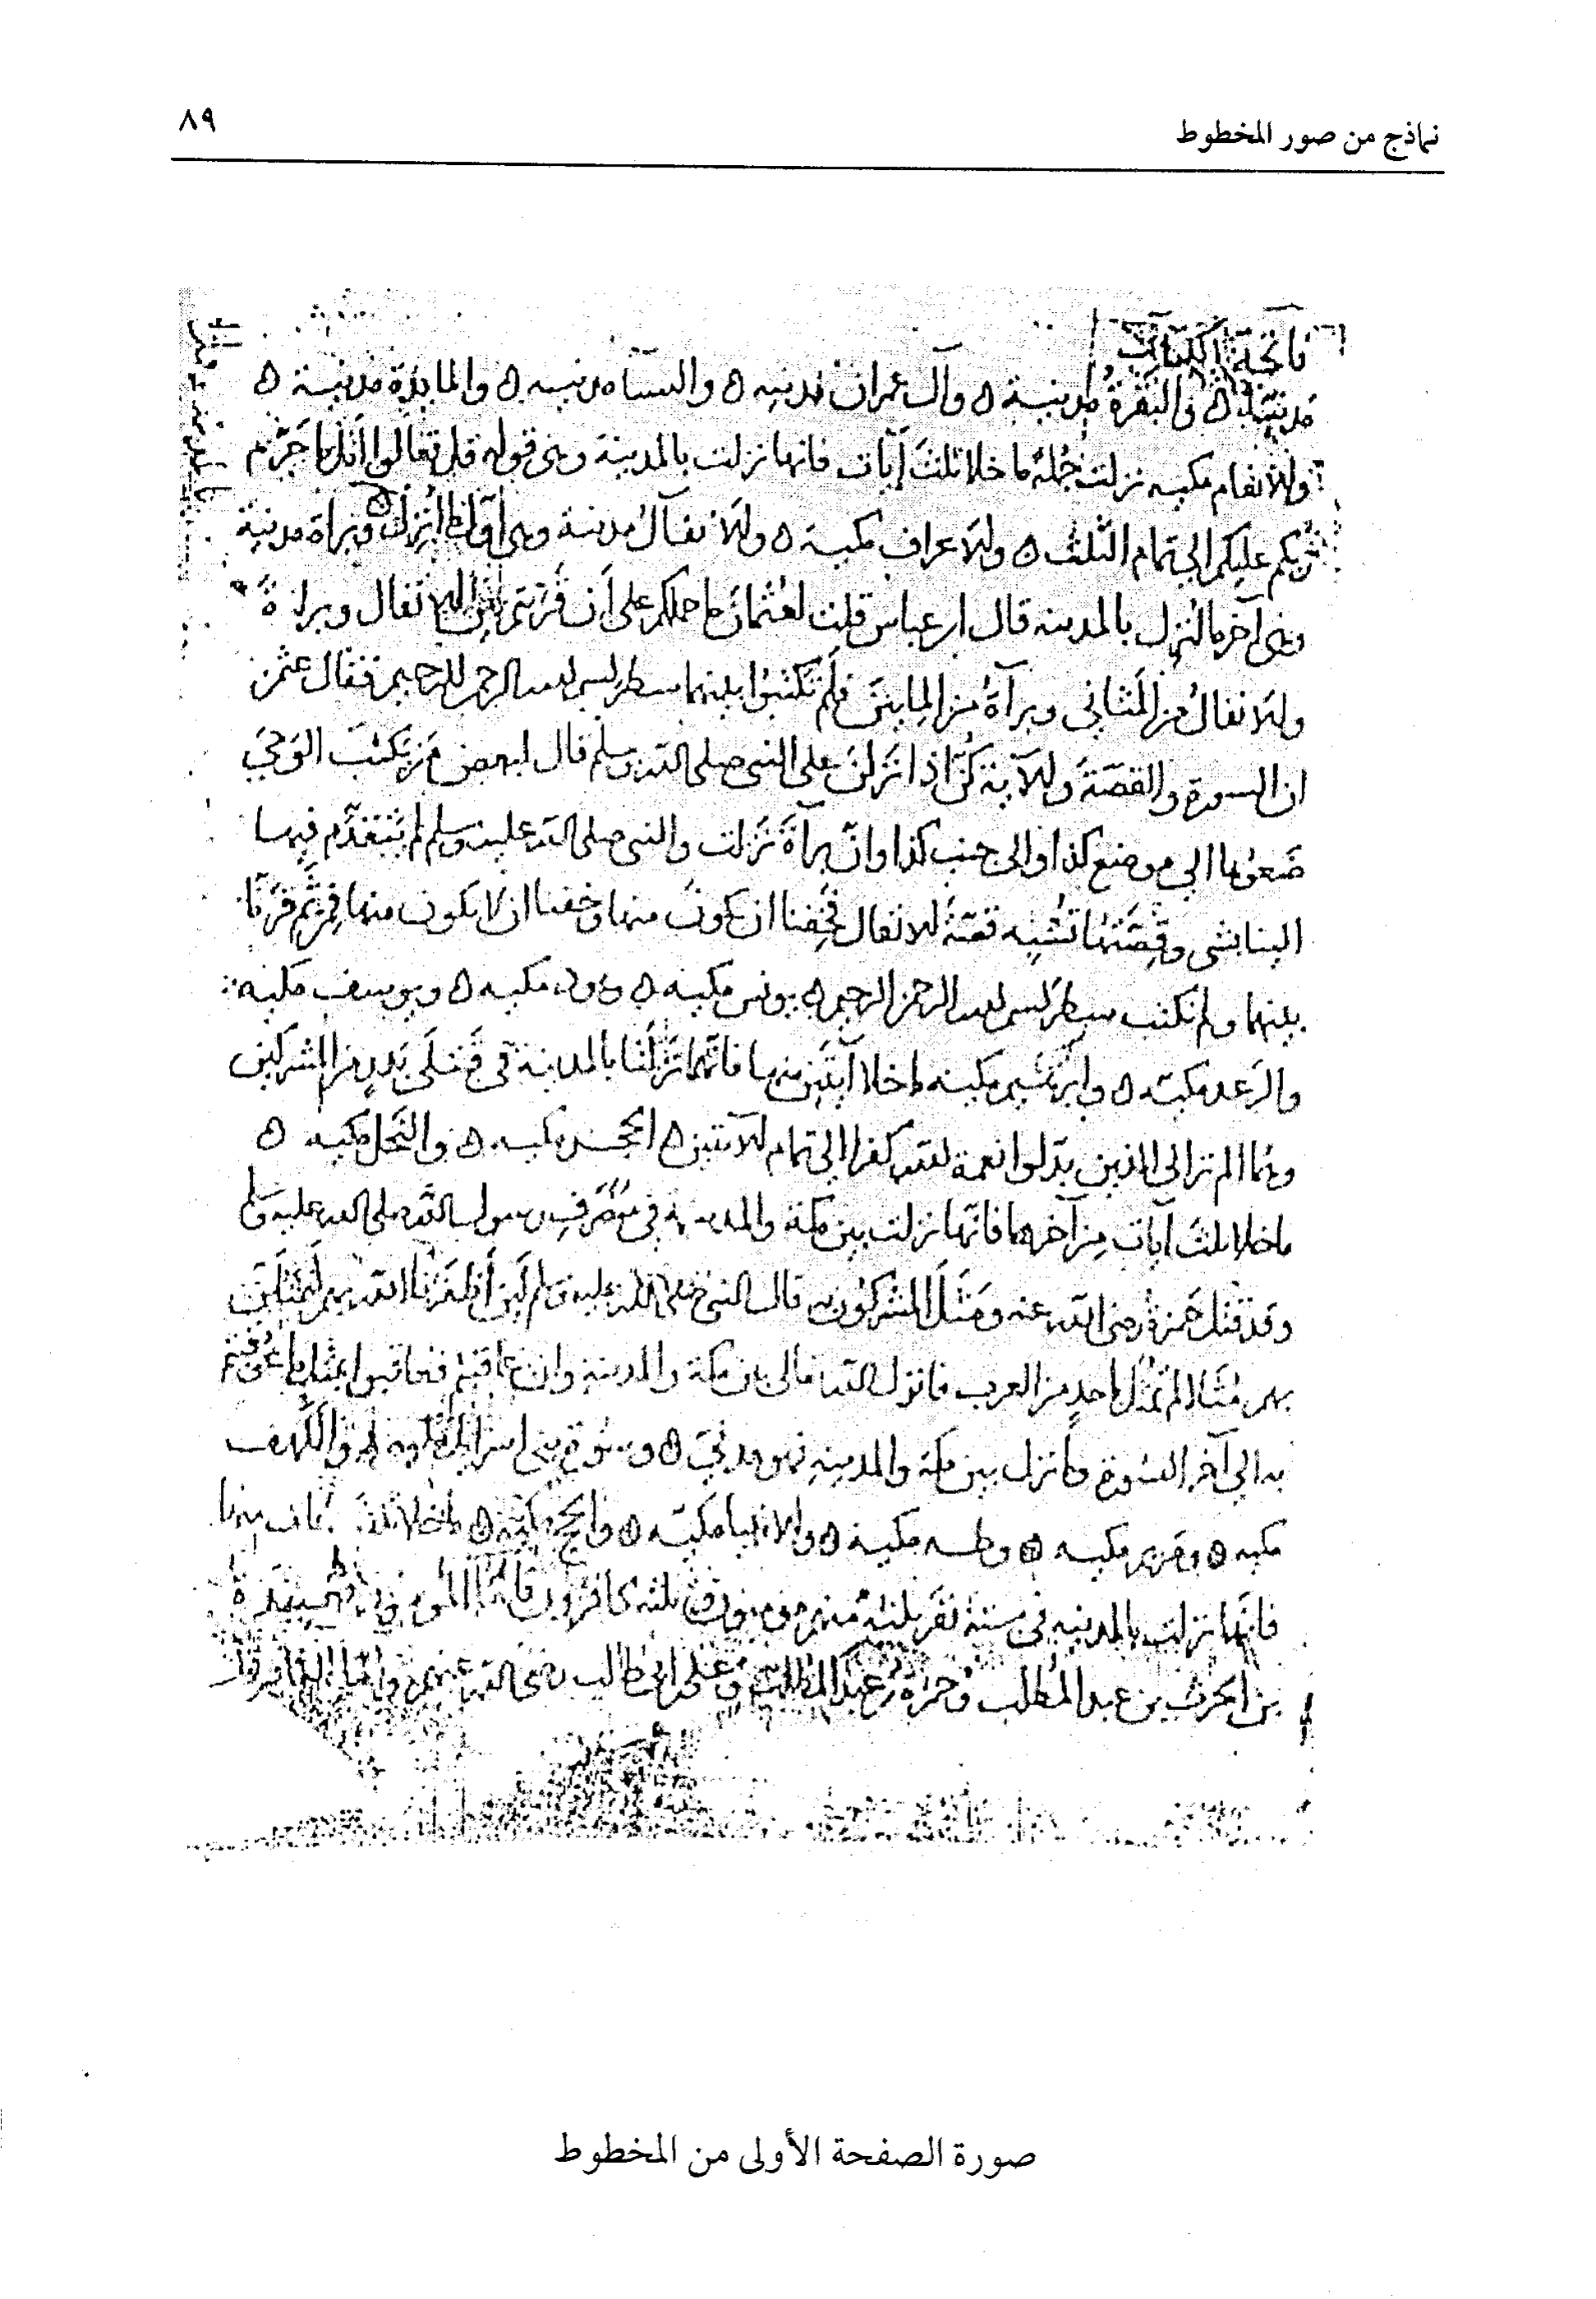 نماذج من صور المخطوط
٨٩
فاتحة الكتاب
مدنية والبقرة مدنية ه وآل عمران مدنيه ه والنسآ مدنييه ه والمايدة مدنية ه
وللانعام مكيه نزلت جمله ما خلا ثلث آيات فانها نزلت بالمدينة وهى قوله قل تعالوا اتل ما حرّم
ربكم عليكم الى تمام الثلث ه وللاعراف مكية ه وللانفال مدنية وهى اول ما انزل ه وبراة مدنية
وهى آخر ما انزل بالمدينه قال ابن عباس قلت لعثمان ما حملكم على أن قرنتم بين للانفال وبراة
وللانفال من المثاني وبرآة من المايين فلم تكتبوا بينهما سطر بسم الله الرحمن الرحيم فقال عثمن
ان السورة والقصة وللآية كنّ اذا نزلن على النبى صلى الله وسلم قال لبعض من يكتب الوحي
ضعوها الى موضع كذا والى جنب كذا وان برآة نزلت والنبى صلى الله عليه وسلم لم يتقدم فيها
الينا بشى وقصتها تشبه قصة للانفال فخفنا ان تكون منها وخفنا ان لا تكون منها فمن ثم فرقنا
بينهما ولم نكتب سطر بسم الله الرحمن الرحيم ه يونس مكيه ه وهود مكيه ه ويوسف مكيه
والرعد مكيه ه وابرهيم مكيه ما خلا آيتين منها فانهما نزلتا بالمدينة في قتلى بدر من المشركين
وهما الم تر الى الذين بدلوا نعمة الله كفرا الى تمام للآيتين ه الحجر مكيه ه والنحل مكيه ه
ما خلا ثلث آيات من آخرها فانها نزلت بين مكة والمدينة في منصرف رسول الله صلى الله عليه وسلم
وقد قتل حمزة رضى الله عنه ومثل المشركون به قال النبى صلى الله عليه وسلم لين أظفرنا الله بهم لنمثلن
بهم مثلا لم يمثل باحد من العرب فانزل الله تعالى بين مكة والمدينه وان عاقبتم فعاقبوا بمثل ما عوقبتم
به الى آخر السورة وما نزل بين مكة والمدينه فهو مدنيّ ه وسورة بنى اسرايل مكيه ه والكهف
مكيه ه ومريم مكيه ه وطه مكية ه والانبيا مكيه ه والحج مكية ه ما خلا ثلث آيات منها
فانها نزلت بالمدينه في ستة نفر ثلثه منهم مومنون وثلثه كافرون فاما المومنون فعبيدة
بن الحرث بن عبد المطلب وحمزة بن عبد المطلب وعلى بن ابى طالب رضى الله عنهم واما الكافرون
صورة الصفحة الأولى من المخطوط